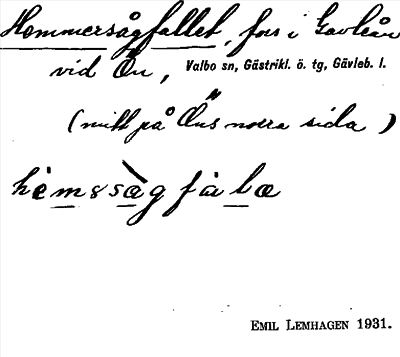 Hemmersågfallet, fors i Gavleån
vid Ön, Valbo sn, Gästrikl. ö. tg, Gävleb. l.
(mitt på Öns norra sida)
hèmssàgfàlæ
EMIL LEMHAGEN 1931.